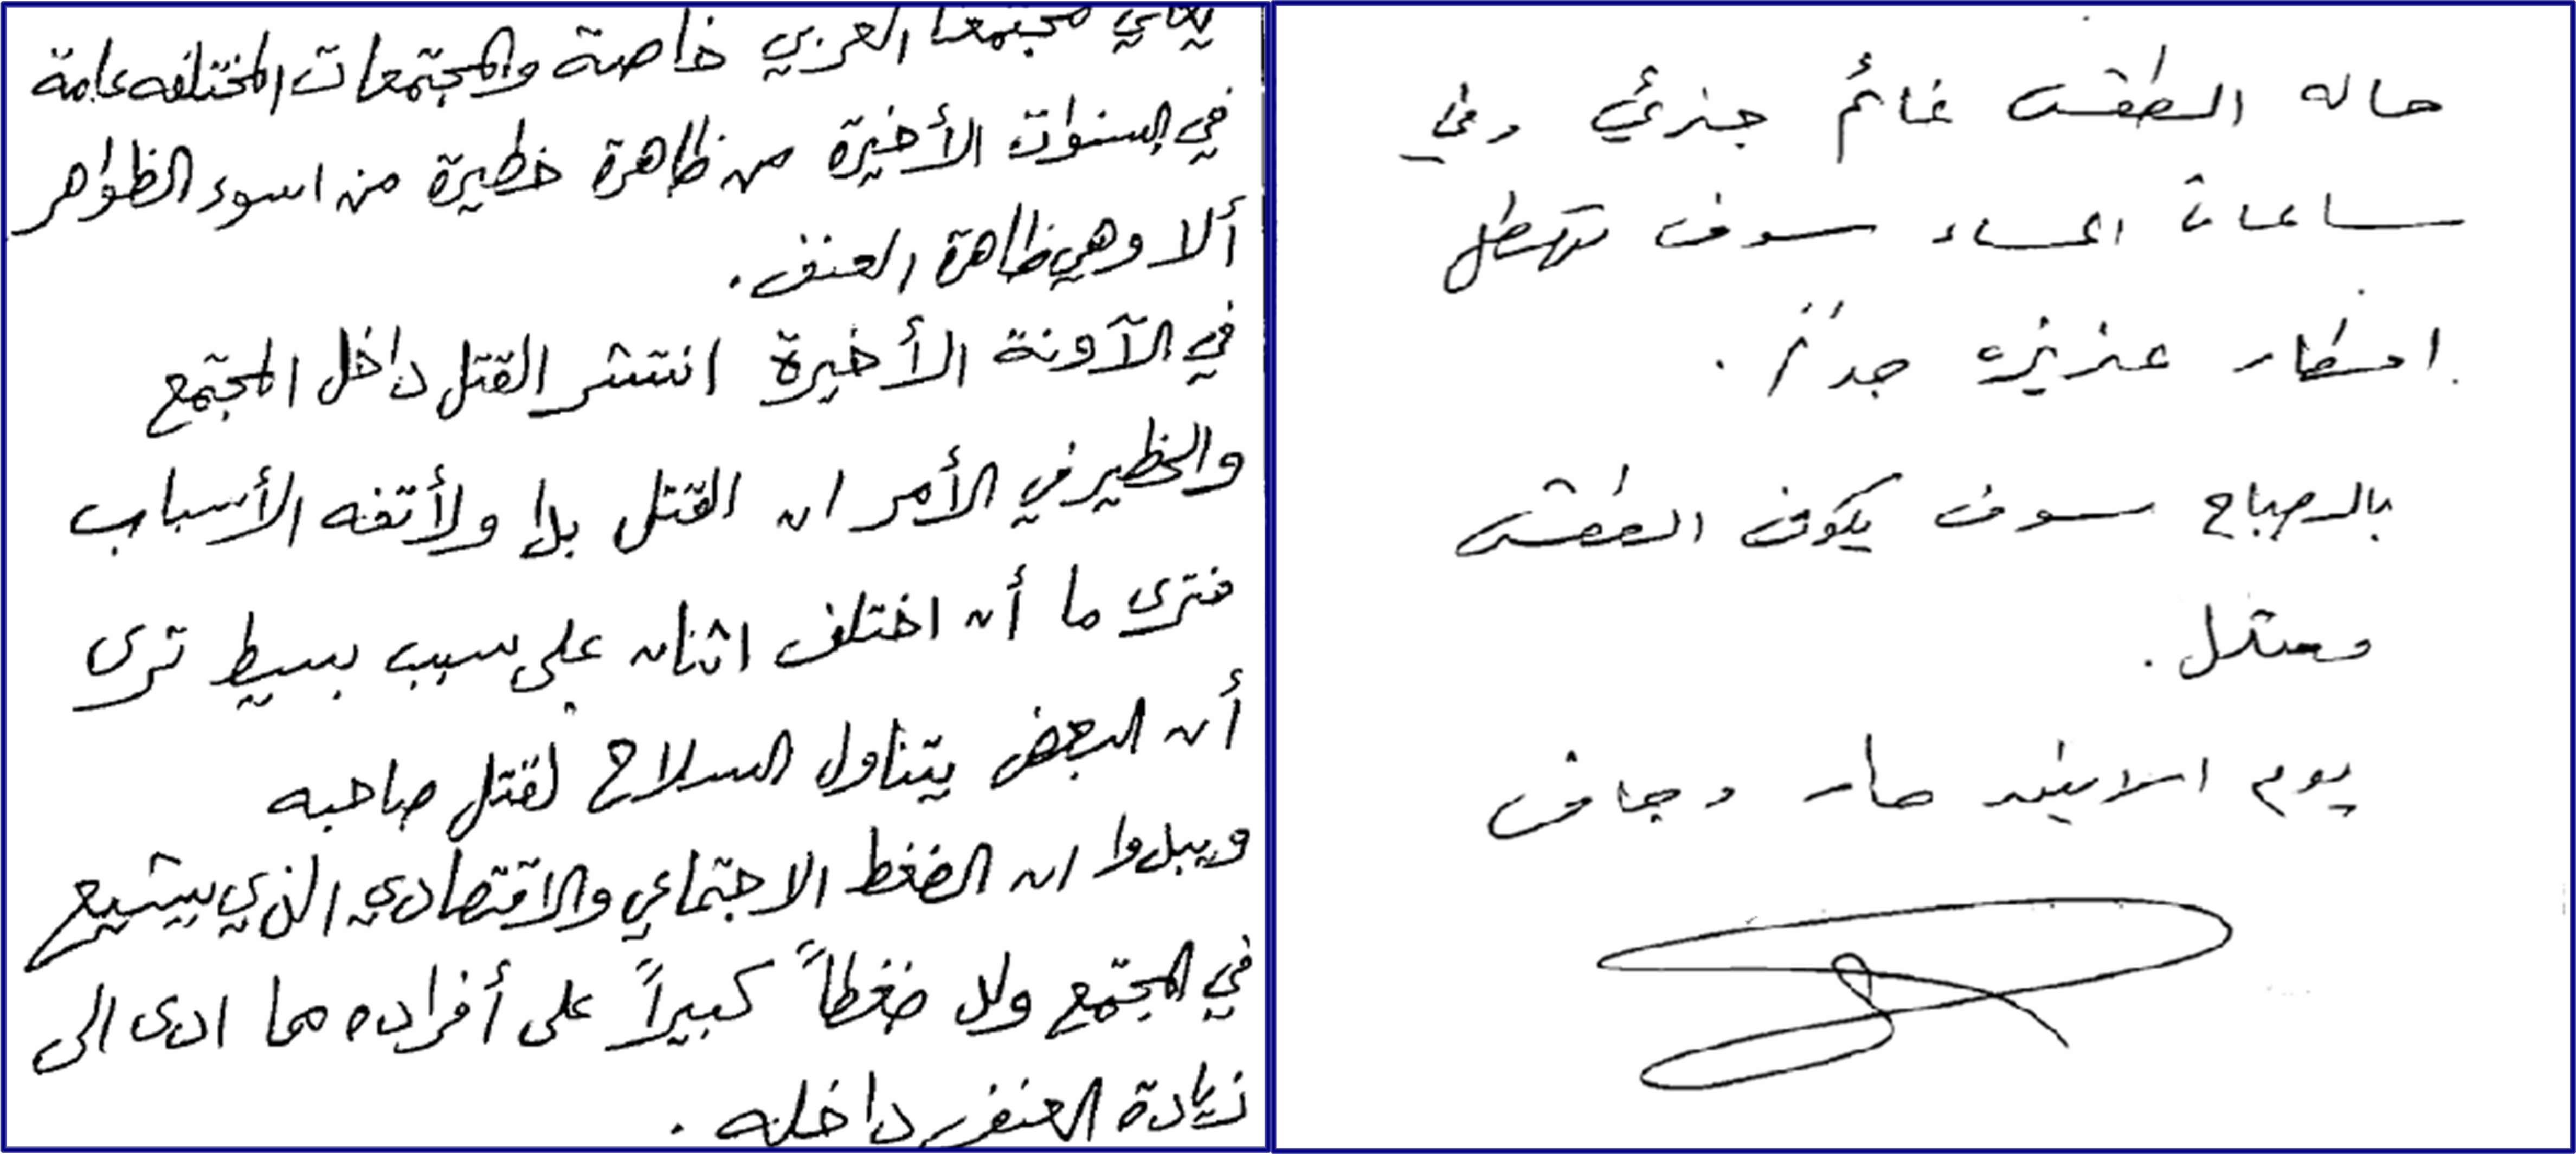 يعاني مجتمعنا العربي خاصة والمجتمعات المختلفه عامة
في السنوات الأخيرة من ظاهرة خطيرة من اسوء الظواهر
ألا وهي ظاهرة العنف .
في الآونة الأخيرة انتشر القتل داخل المجتمع
والخطير في الأمر ان القتل بدا ولأتفه الأسباب
فترى ما أن اختلف اثنان على سبب بسيط ترى
أن البعض يتناول السلاح لقتل صاحبه
ويبدوا ان الضغط الاجتماعي والاقتصادي الذي يشيع
في المجتمع ولد ضغطاً كبيراً على أفراده مما ادى الى
زيادة العنف داخله .
حاله الطقس غائم جزئي وفي
ساعات المساء سوف تهطل
امطار غزيره جداً .
بالصباح سوف يكون الطقس
معتدل .
يوم الاثنين حار وجاف